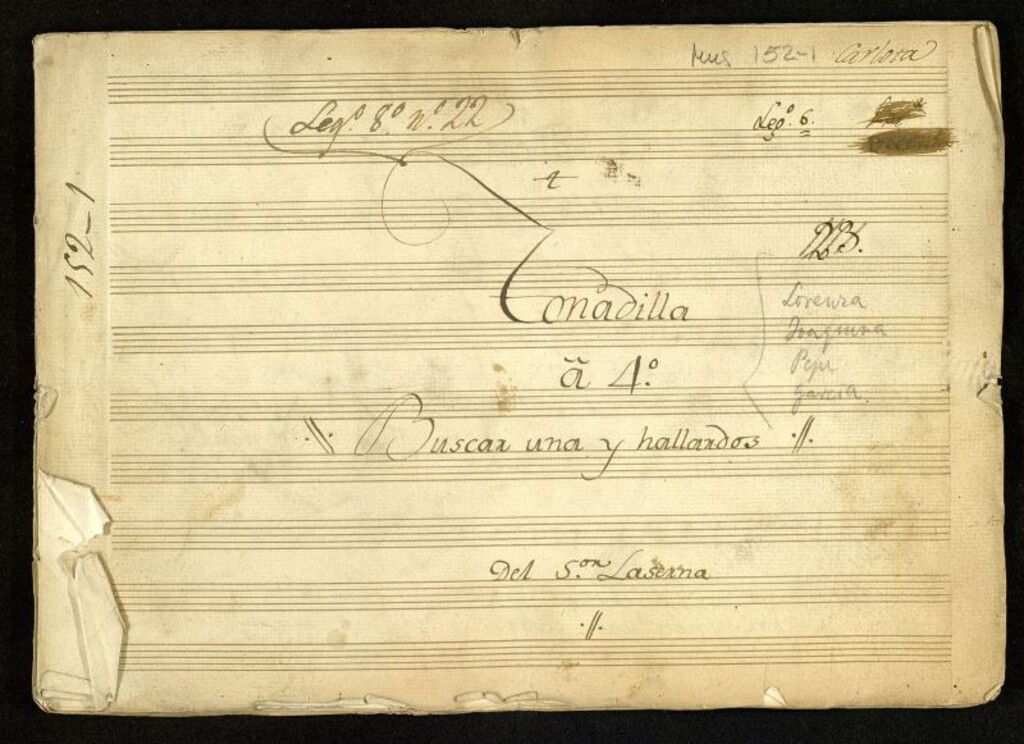 Mus 152-1 Carlota
Legº. 8º. nº. 22
Legº. 6.
152-1
223.
Tonadilla
Lorenza
Joaquina
Pepe
Garcia.
ã 4º.
Buscar una y hallardos
Del S.ᵒʳ Laserna